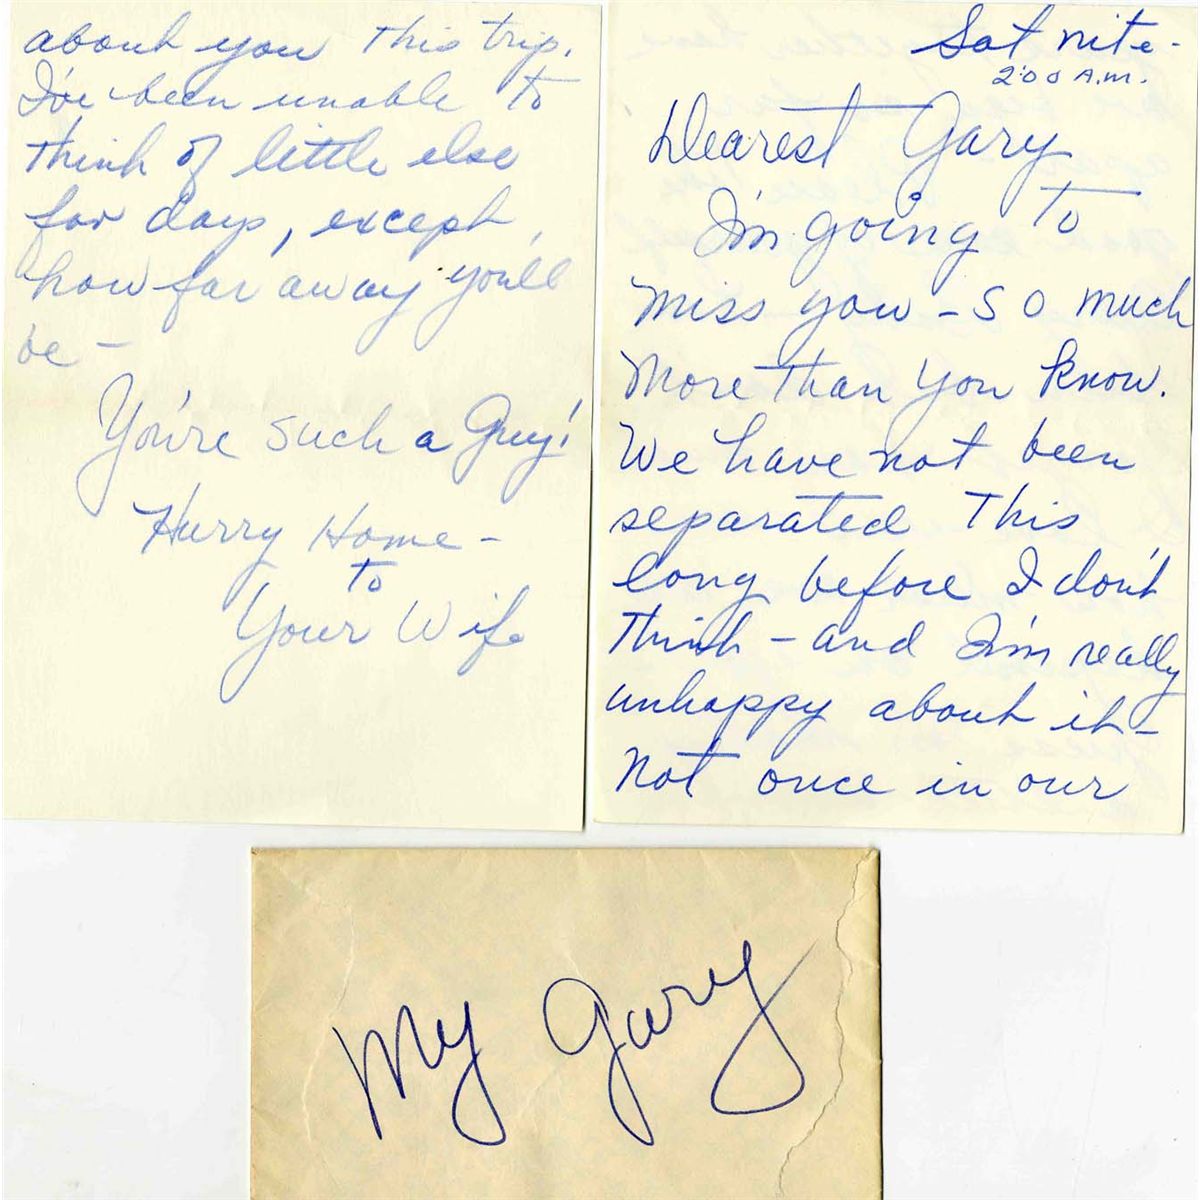 Sat nite -
2:00 A.M.
Dearest Gary
I'm going to
miss you - so much
more than you know.
We have not been
separated this
long before I don't
think - and I'm really
unhappy about it -
Not once in our
about you this trip.
I've been unable to
think of little else
for days, except,
how far away you'll
be -
You're such a Guy!
Hurry Home -
to
Your Wife
My Gary